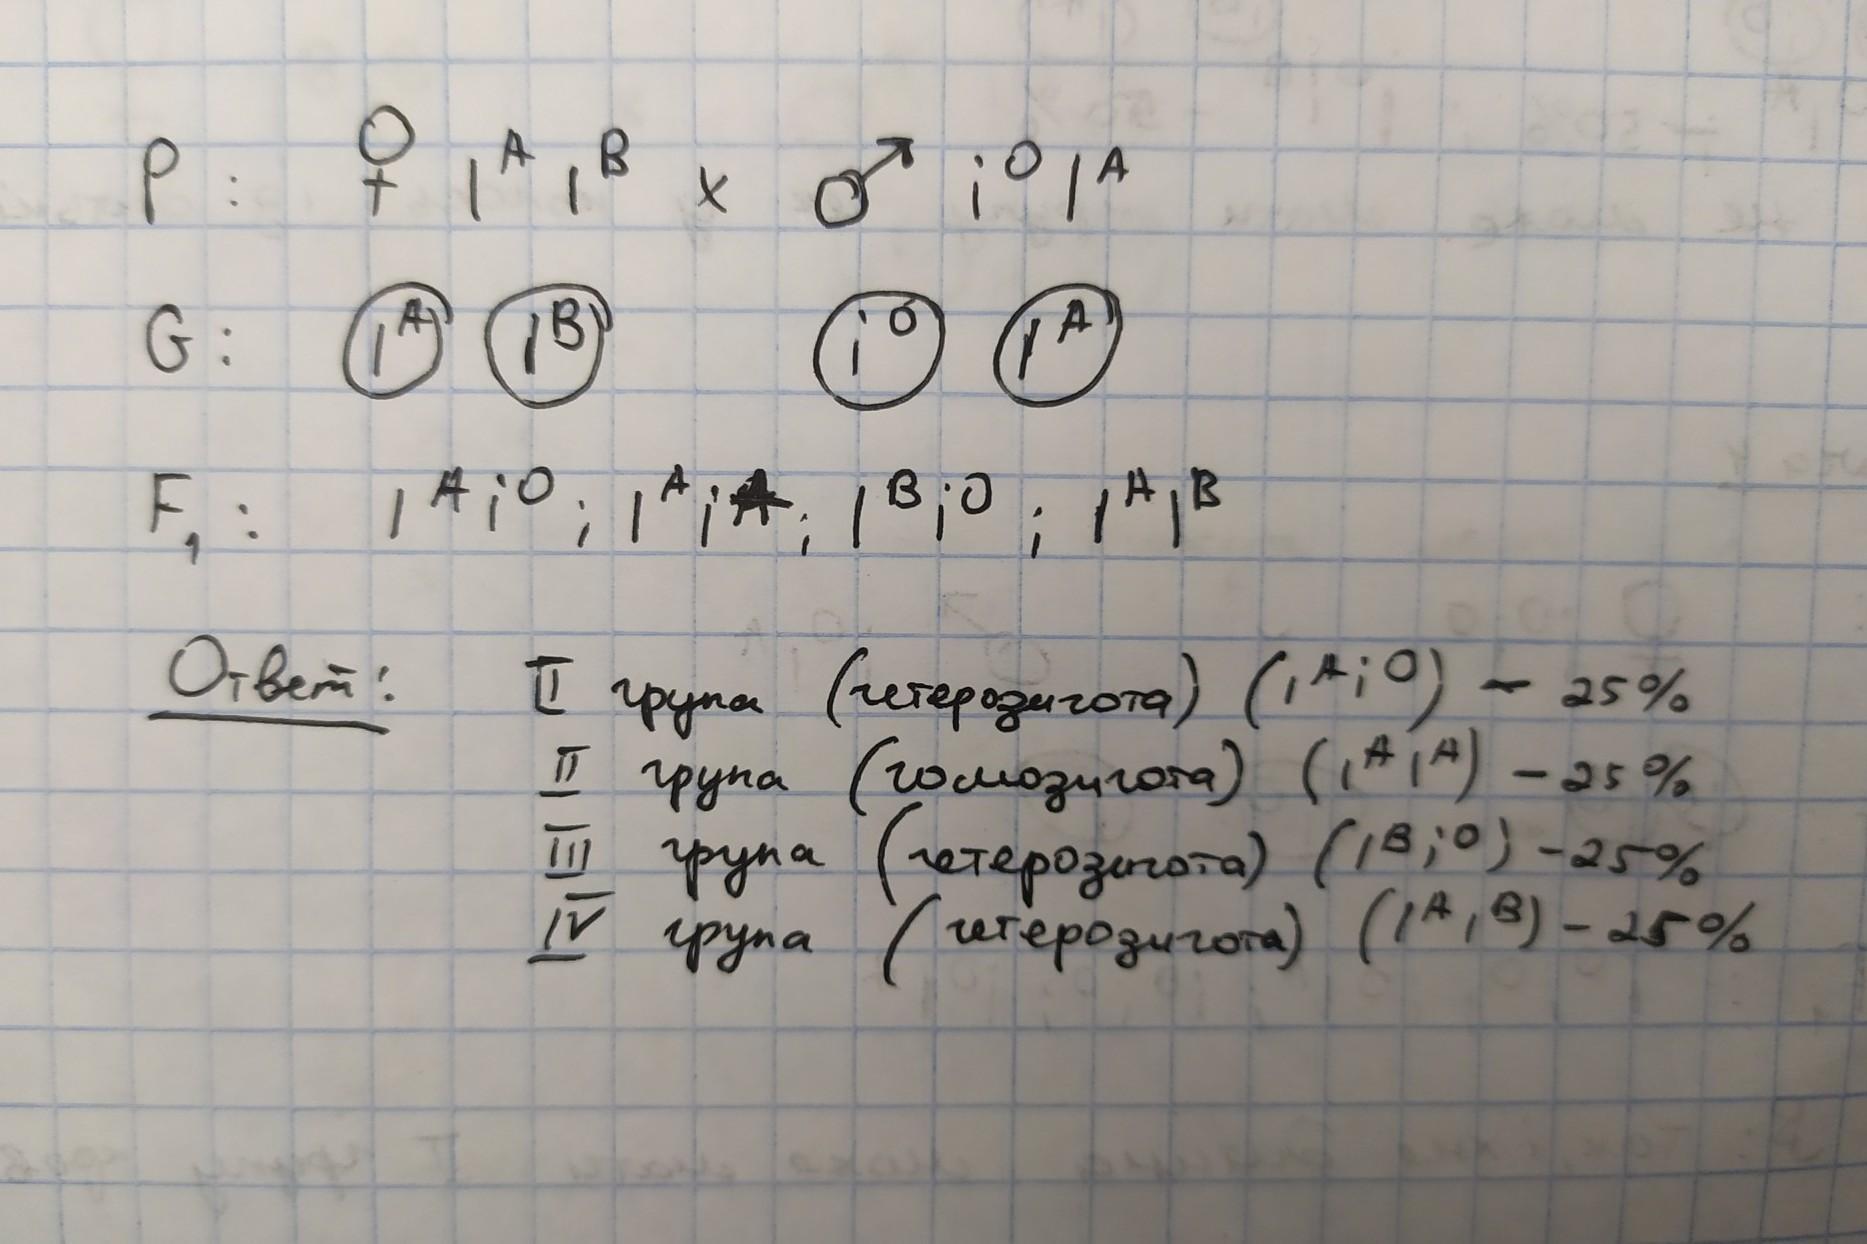 P: ♀ IᴬIᴮ x ♂ i⁰Iᴬ
G: Iᴬ Iᴮ i⁰ Iᴬ
F₁: Iᴬi⁰; Iᴬiᴬ; Iᴮi⁰; IᴬIᴮ
Ответ: II група (гетерозигота) (Iᴬi⁰) - 25%
II група (гомозигота) (IᴬIᴬ) - 25%
III група (гетерозигота) (Iᴮi⁰) - 25%
IV група (гетерозигота) (IᴬIᴮ) - 25%